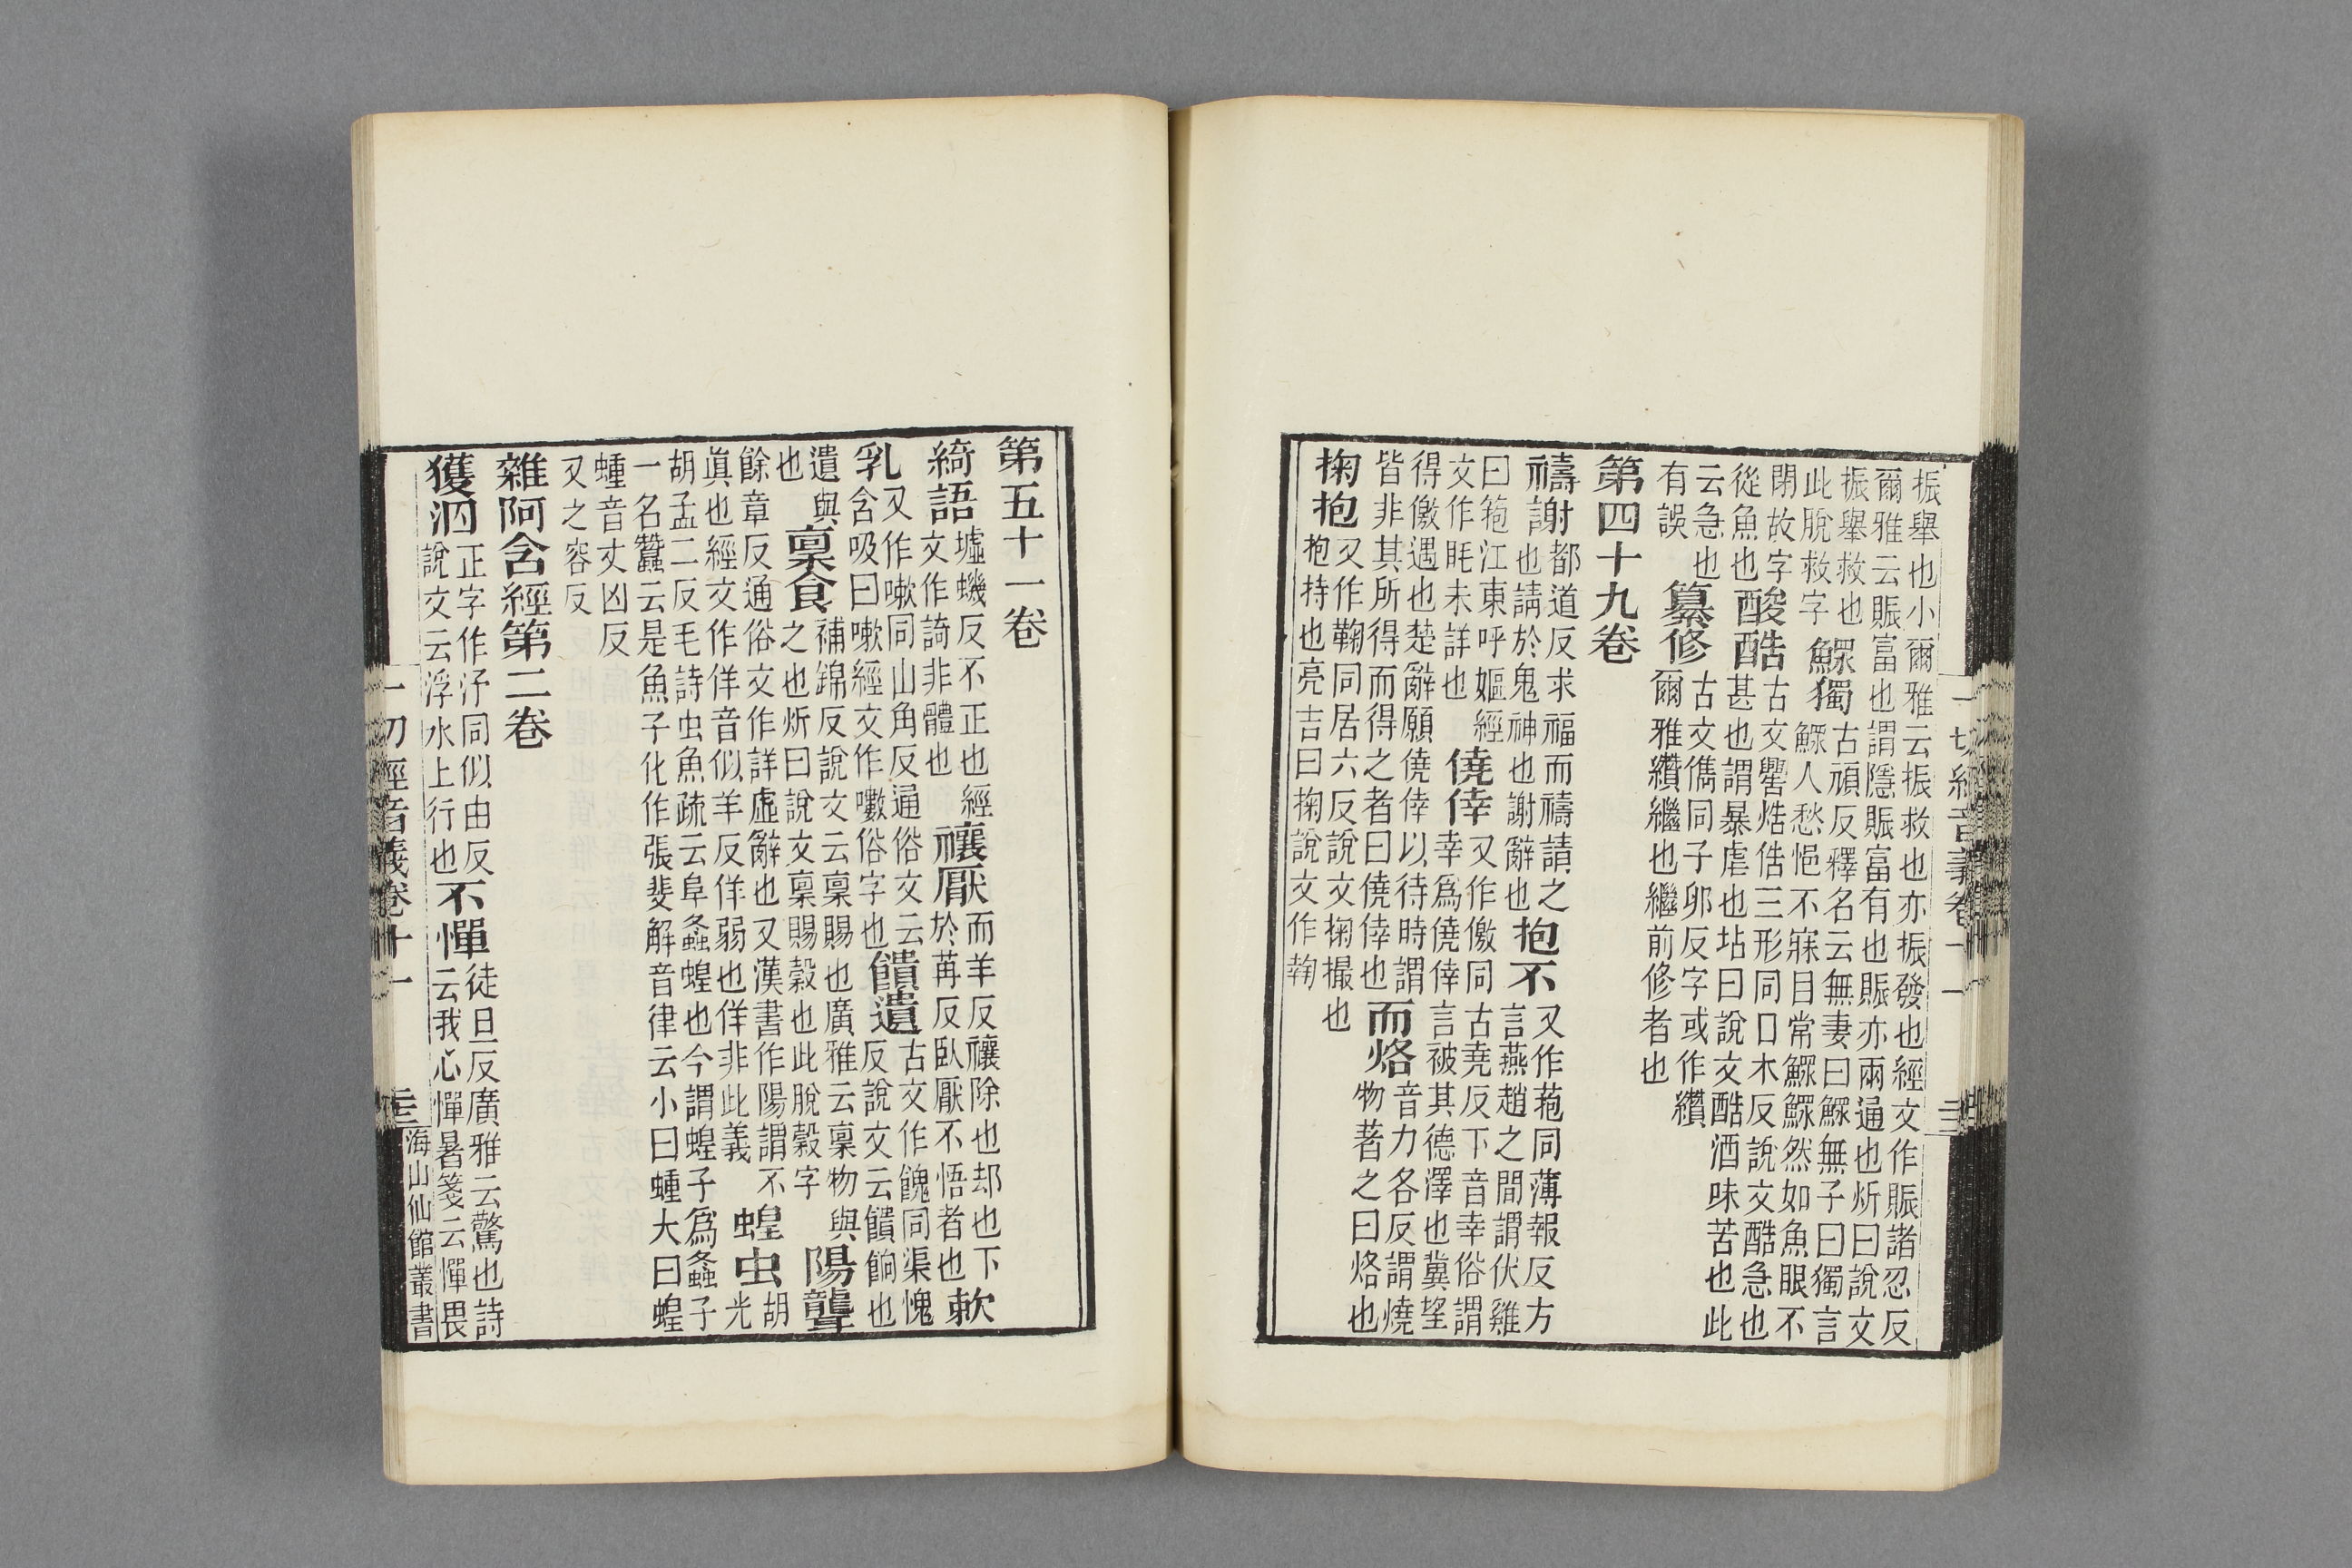 振舉也小爾雅云振救也亦振發也經文作賑諸忍反
爾雅云賑富也謂隱賑富有也賑亦兩通也炘曰說文
振舉救也
此脫救字
鰥獨
古頑反釋名云無妻曰鰥無子曰獨言
鰥人愁悒不寐目常鰥鰥然如魚眼不
閉故字
從魚也
酸酷
古文嚳焅俈三形同口木反說文酷急也
甚也謂暴虐也坫曰說文酷酒味苦也此
云急也
有誤
纂修
古文儁同子卵反字或作纘
爾雅纘繼也繼前修者也
第四十九卷
禱謝
都道反求福而禱請之
也請於鬼神也謝辭也
抱不
又作菢同薄報反方
言燕趙之間謂伏雞
曰菢江東呼嫗經
文作眊未詳也
僥倖
又作儌同古堯反下音幸俗謂
幸爲僥倖言被其德澤也冀望
得儌遇也楚辭願僥倖以待時謂
皆非其所得而得之者曰僥倖也
而烙
音力各反謂燒
物著之曰烙也
掬抱
又作鞠同居六反說文掬撮也
抱持也亮吉曰掬說文作
一切經音義卷十一
第五十一卷
綺語
墟蟣反不正也經
文作䛴非體也
禳厭
而羊反禳除也却也下
於苒反臥厭不悟者也
欶乳
又作嗽同山角反通俗文云
含吸曰嗽經文作㘔俗字也
饋遺
古文作餽同渠愧
反說文云饋餉也
遺與
也
稟食
補錦反說文云稟賜也廣雅云稟物與
之也炘曰說文稟賜穀也此脫穀字
陽聾
餘章反通俗文作詳虛辭也又漢書作陽謂不
眞也經文作佯音似羊反佯弱也佯非此義
蝗虫
胡光
胡孟二反毛詩虫魚疏云阜螽蝗也今謂蝗子爲螽子
一名蠶云是魚子化作張斐解音律云小曰蝩大曰蝗
蝩音丈凶反
又之容反
雜阿含經第二卷
獲泅
正字作汓同似由反
說文云浮水上行也
不憚
徒旦反廣雅云驚也詩
云我心憚暑箋云憚畏
一切經音義卷十一
海山仙館叢書